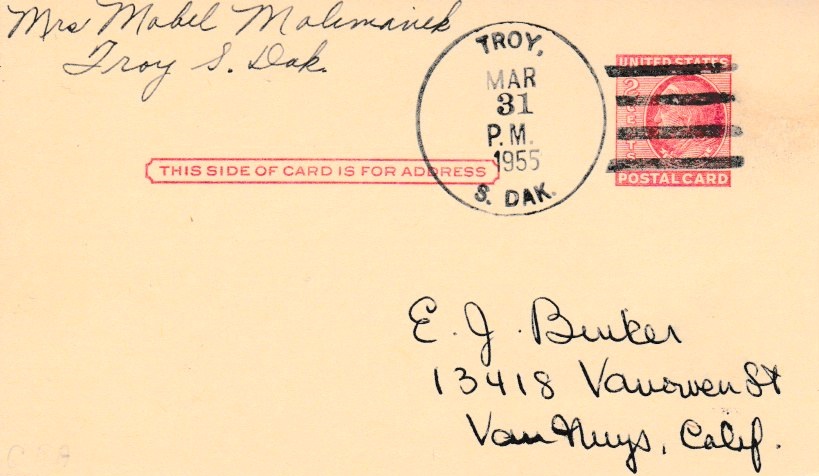 Mrs Mabel Molimanek
Troy S. Dak.
TROY,
MAR
31
P.M.
1955
S. DAK.
UNITED STATES
2 CENTS
POSTAL CARD
THIS SIDE OF CARD IS FOR ADDRESS
E. J. Binker
13418 Vanowen St
Van Nuys, Calif.